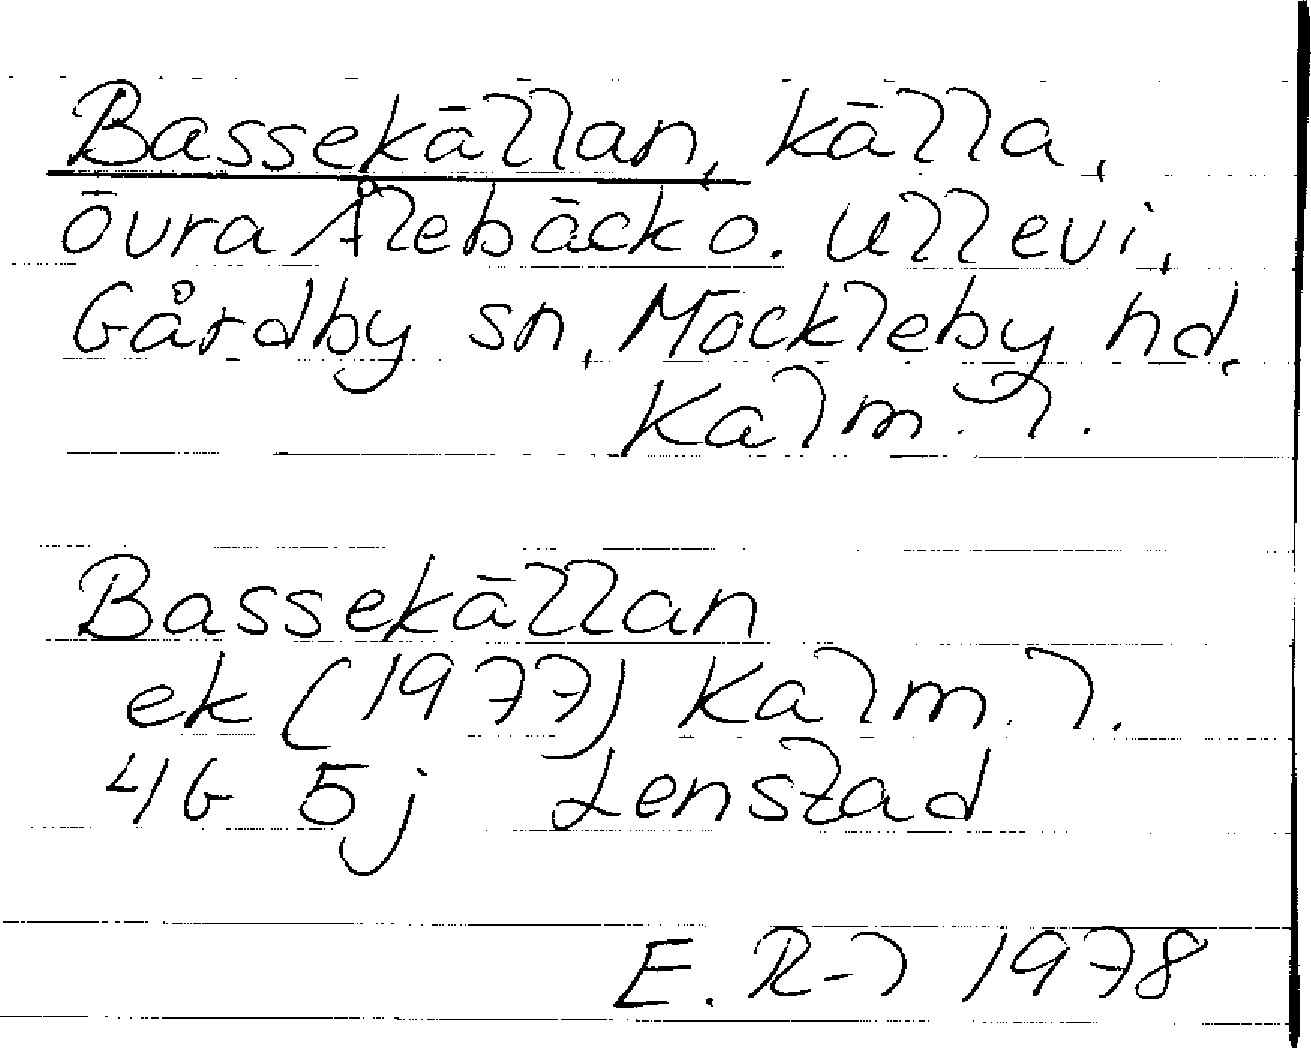 Bassekällan, källa,
övra Ålebäck o. Ullevi,
Gårdby sn, Möckleby hd.
Kalm. l.
Bassekällan
ek (1977) Kalm. l.
4G 5j Lenstad
E. R-l 1978